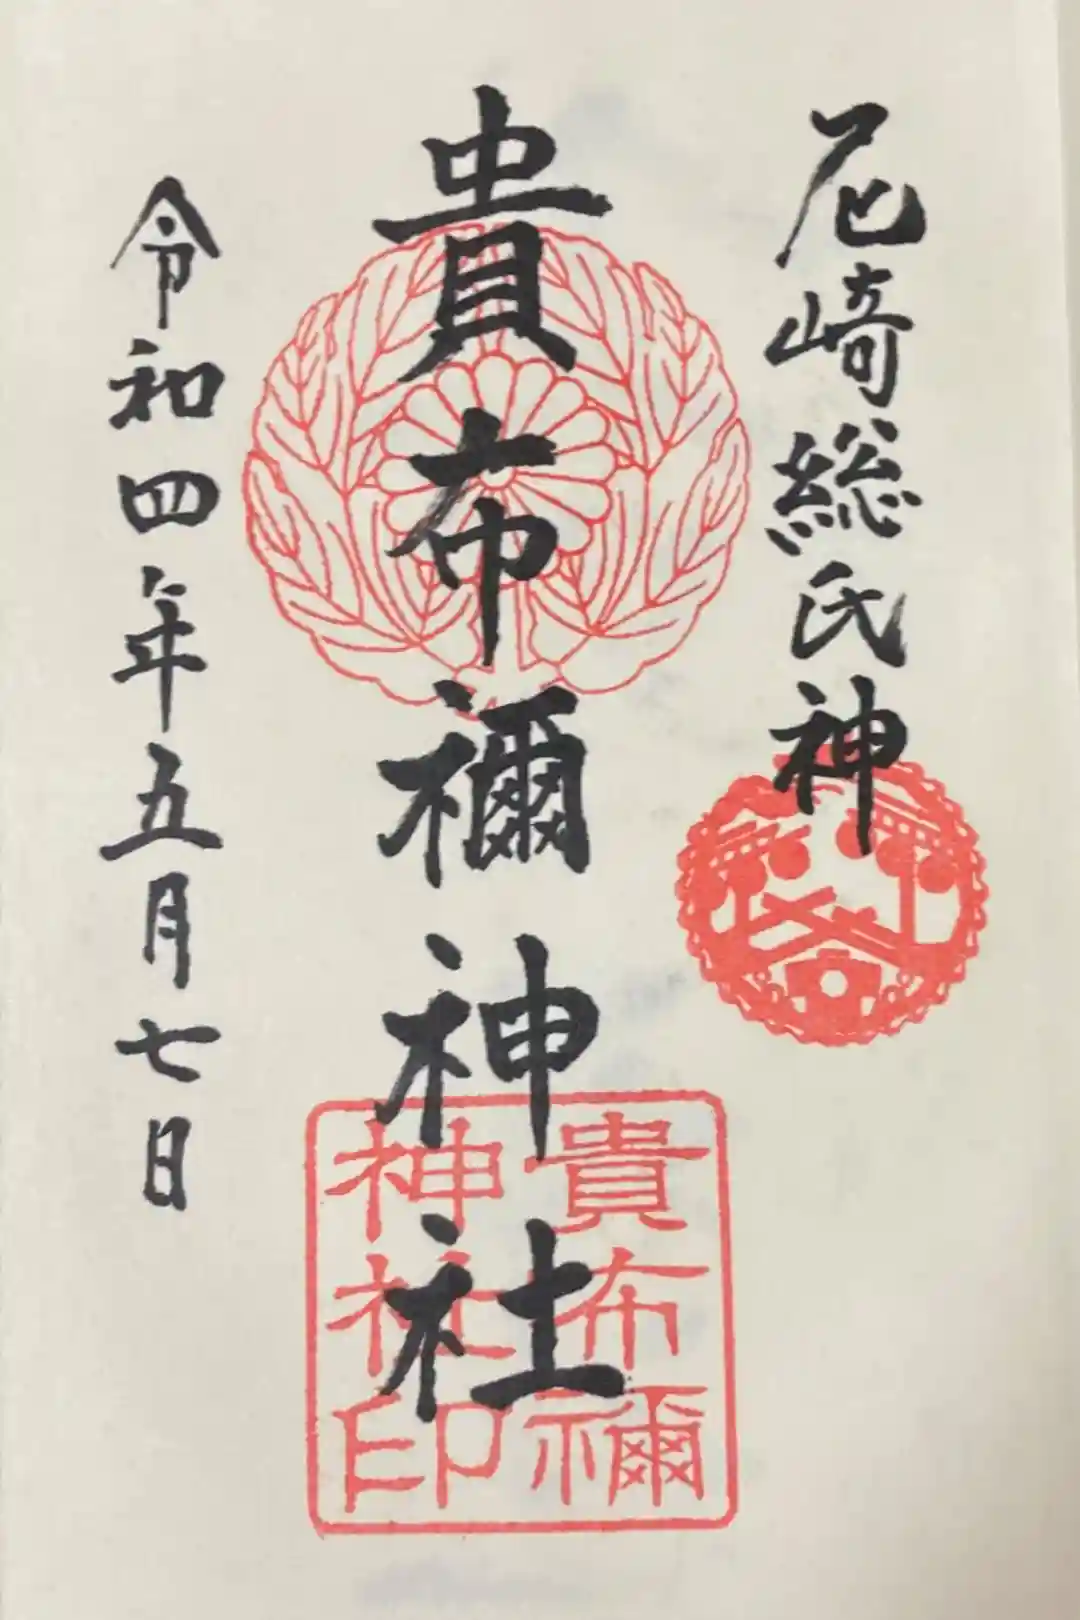 尼崎総氏神
貴布禰神社
令和四年五月七日
貴布禰
神社印